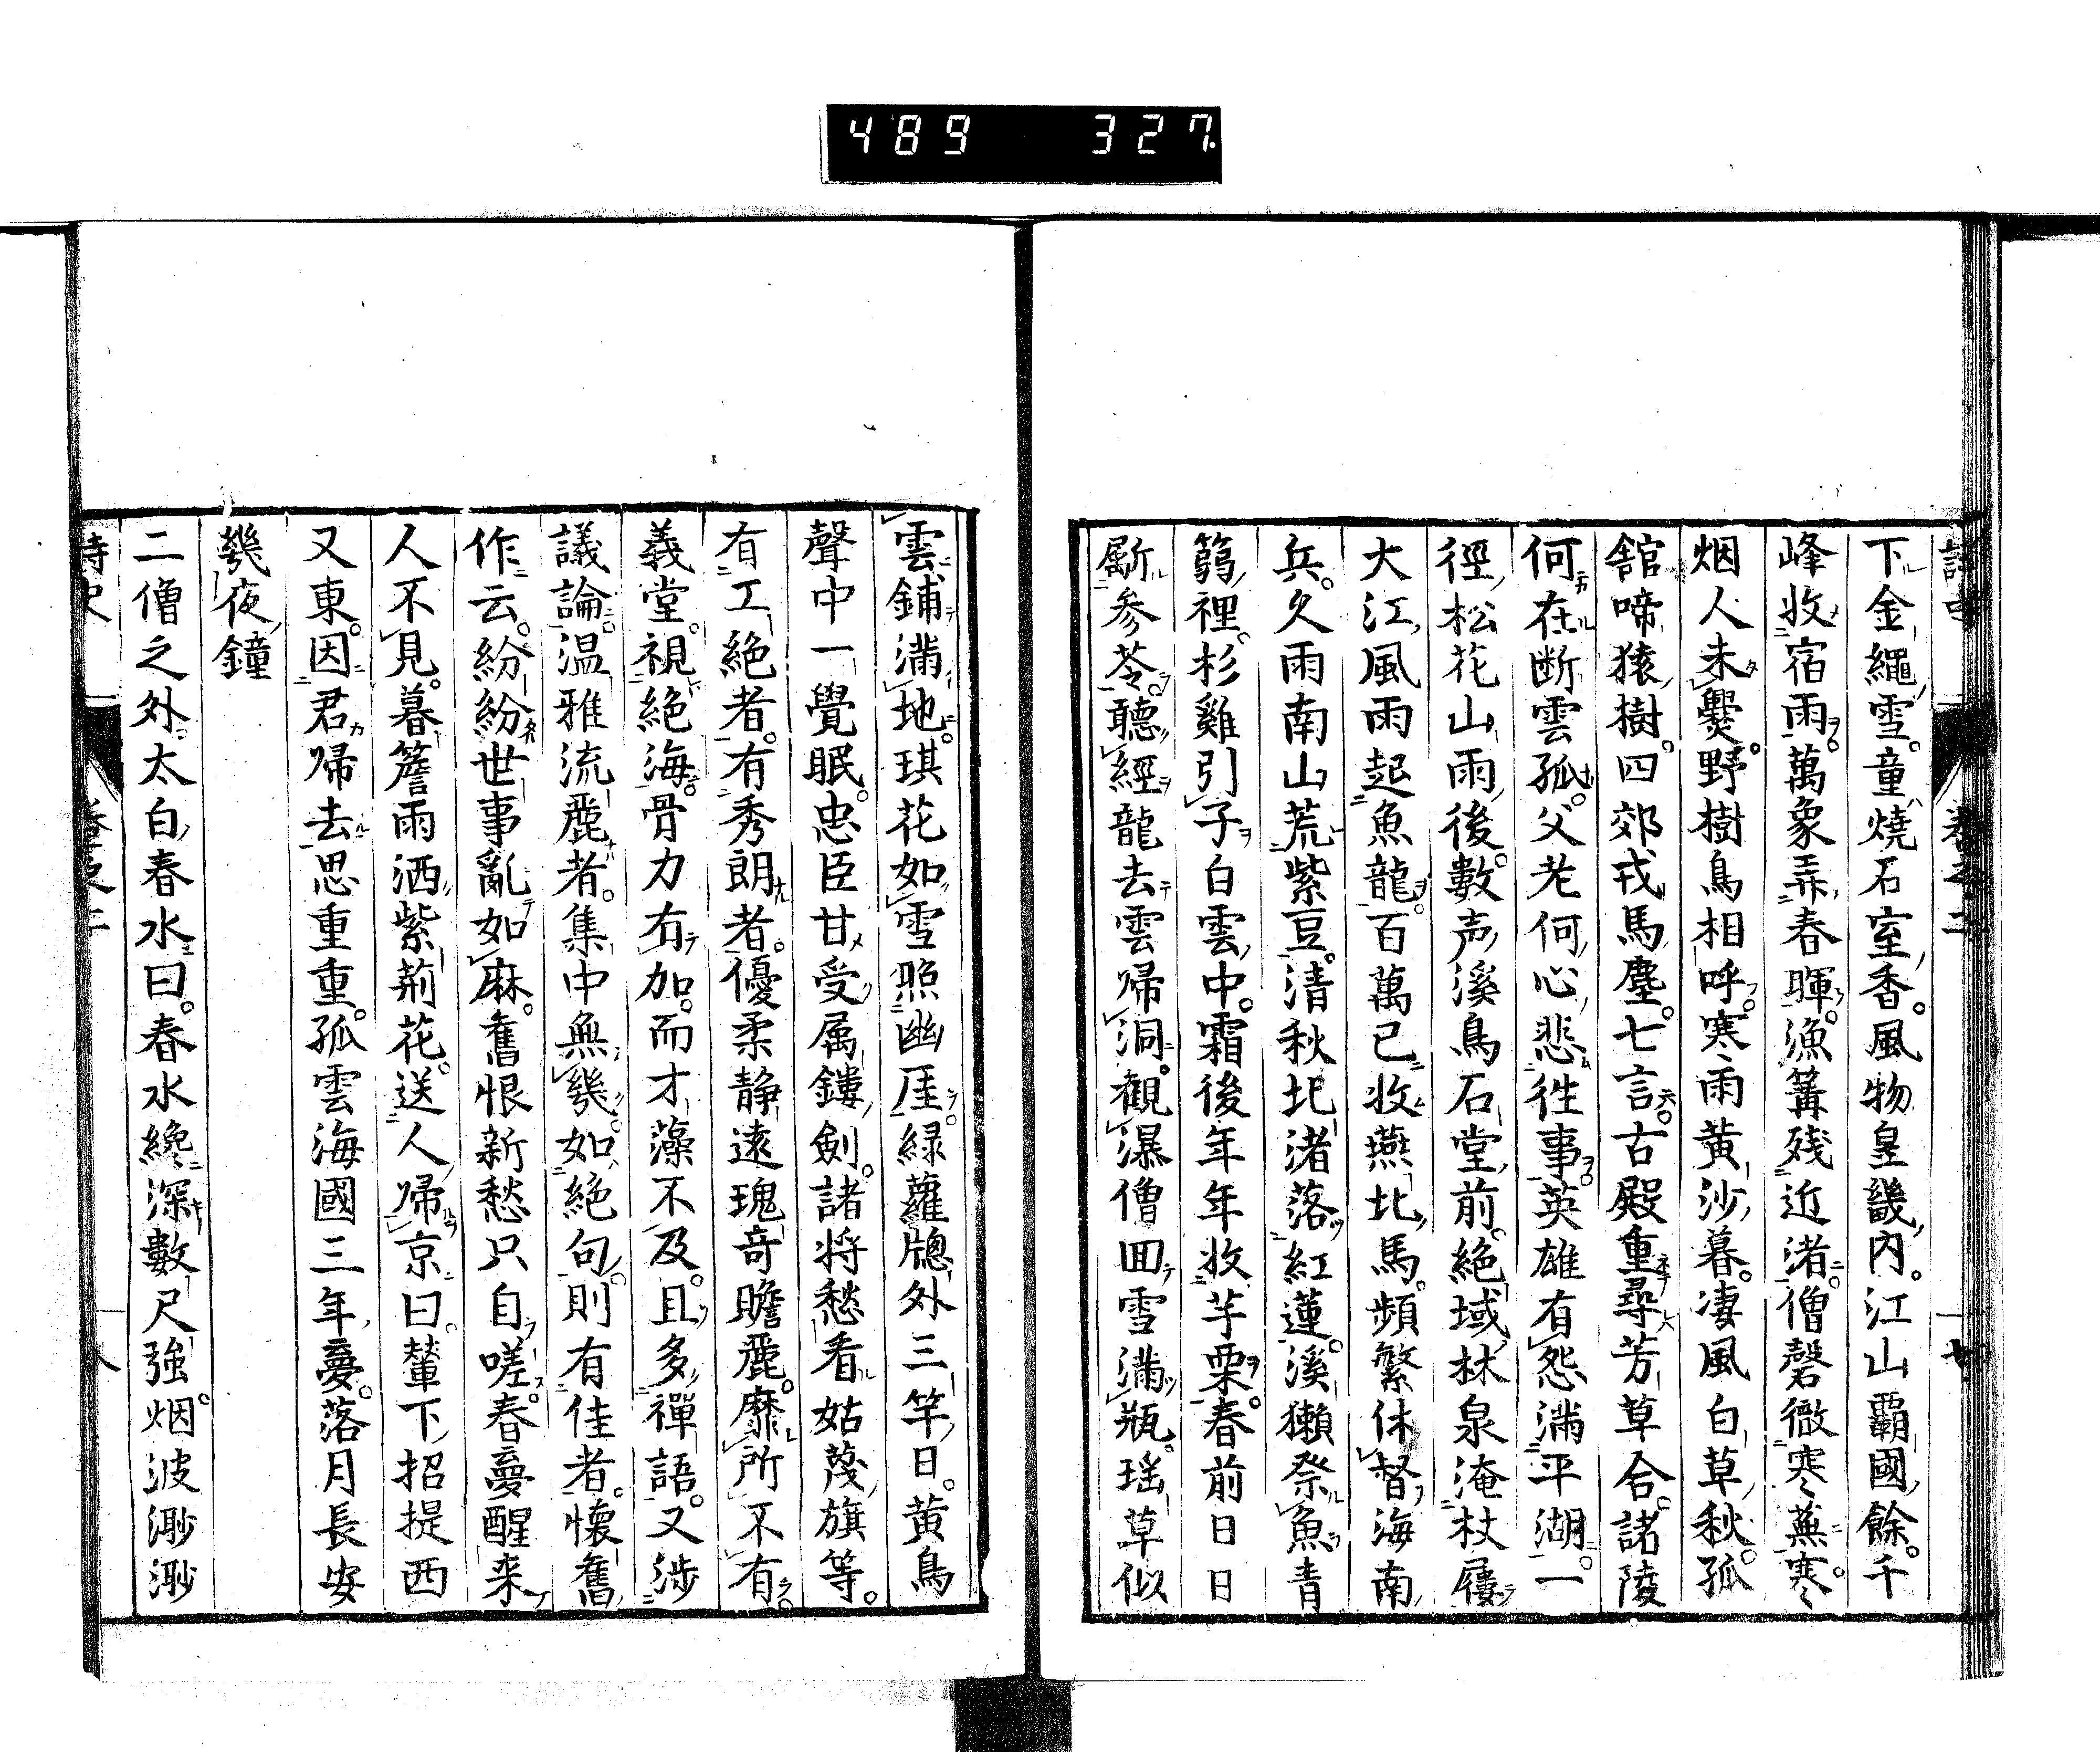 489 327
下金繩雪。童燒石室香。風物皇畿內。江山覇國餘。千
峰收宿雨。萬象弄春暉。漁篝殘近渚。僧磬微寒蕪。寒
烟人未爨。野樹鳥相呼。寒雨黃沙暮。凄風白草秋。孤
舘啼猿樹。四郊戎馬塵。七言。古殿重尋芳草合。諸陵
何在断雲孤。父老何心悲往事。英雄有怨滿平湖。一
徑松花山雨後。數声溪鳥石堂前。絕域林泉淹杖屨。
大江風雨起魚龍。百萬已收燕北馬。頻繁休督海南
兵。久雨南山荒紫豆。清秋北渚落紅蓮。溪獺祭魚青
篛裡。杉雞引子白雲中。霜後年年收芋栗。春前日日
斸參苓。聽經龍去雲帰洞。觀瀑僧囬雪滿瓶。瑶草似
雲鋪滿地。琪花如雪照幽厓。緑蘿牕外三竿日。黃鳥
聲中一覺眠。忠臣甘受属鏤劍。諸将愁看姑蔑旗等。
有工絕者。有秀朗者。優柔静遠瑰竒贍麗。靡所不有。
義堂視絕海。骨力有加。而才藻不及。且多禪語。又涉
議論。温雅流麗者。集中無幾。如絕句則有佳者。懷舊
作云。紛紛世事亂如麻。舊恨新愁只自嗟。春夢醒来
人不見。暮簷雨洒紫荊花。送人帰京曰。輦下招提西
又東。因君帰去思重重。孤雲海國三年夢。落月長安
幾夜鐘
二僧之外。太白春水曰。春水纔深數尺強。烟波渺渺